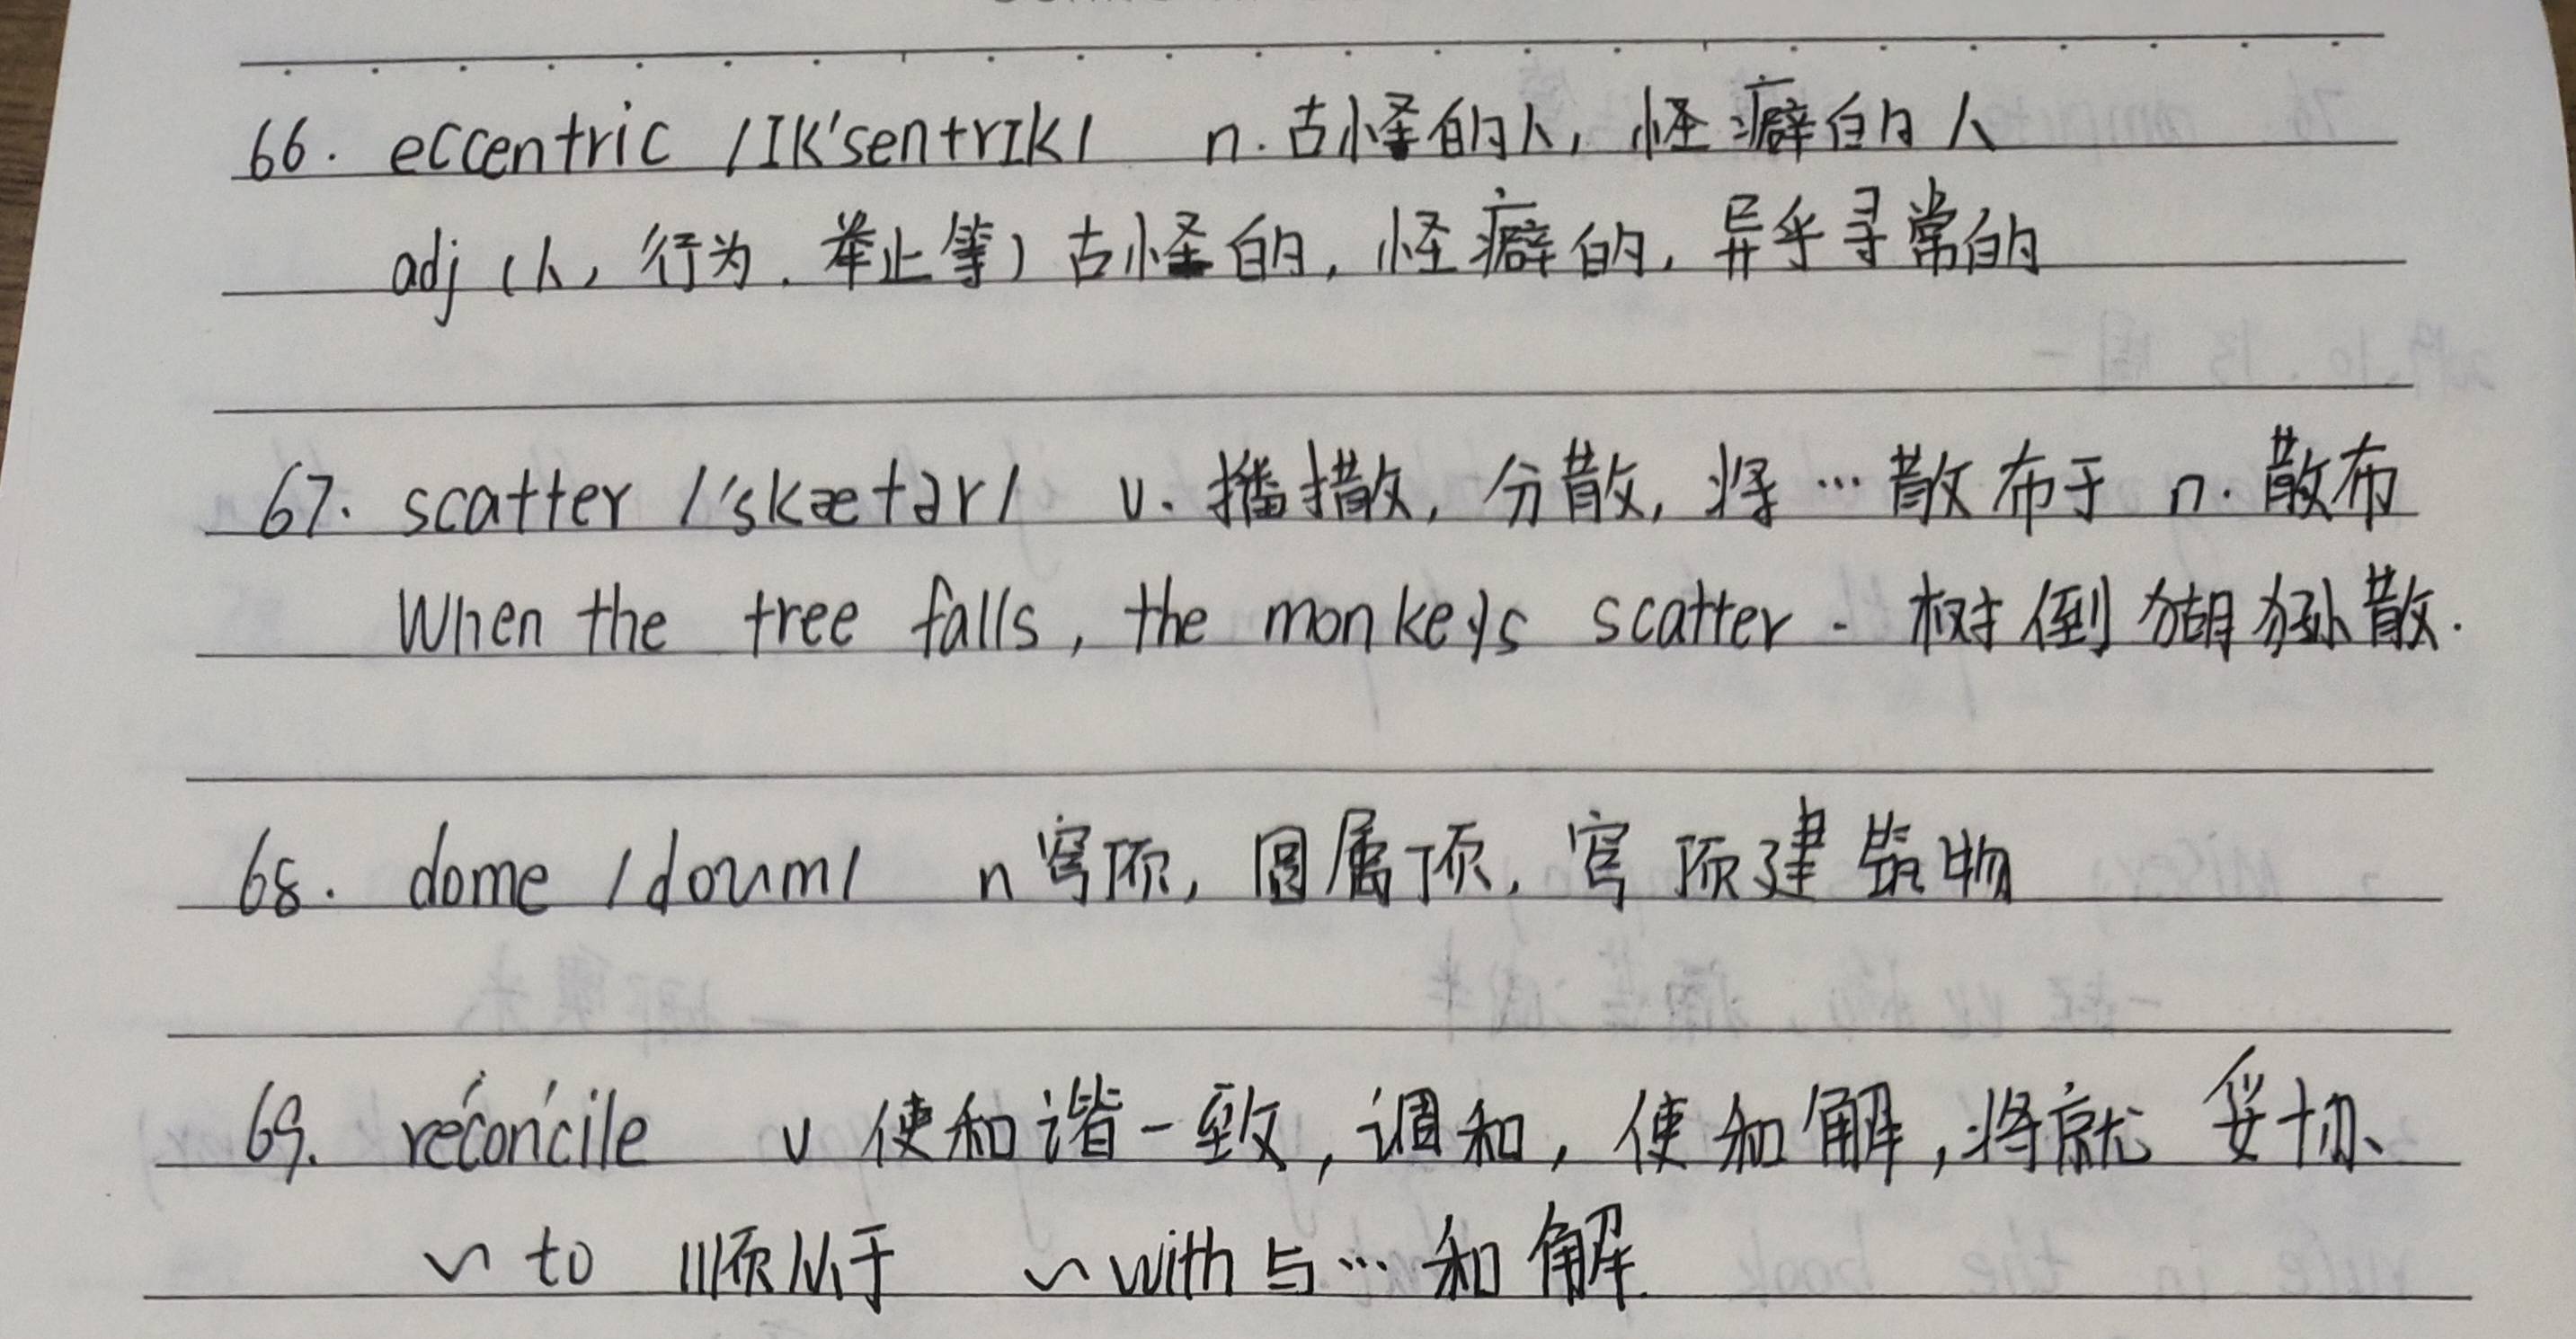 66. eccentric /Ik'sentrIk/ n.古怪的人, 怪癖的人
adj (人, 行为. 举止等) 古怪的, 怪癖的, 异乎寻常的
67. scatter /'skætər/ v. 播撒, 分散, 将…散布于 n. 散布
When the tree falls, the monkeys scatter. 树倒猢狲散.
68. dome /doum/ n 穹顶, 圆屋顶, 穹顶建筑物
69. reconcile v 使和谐一致, 调和, 使和解, 将就 妥协、
~ to 顺从于 ~ with 与…和解.